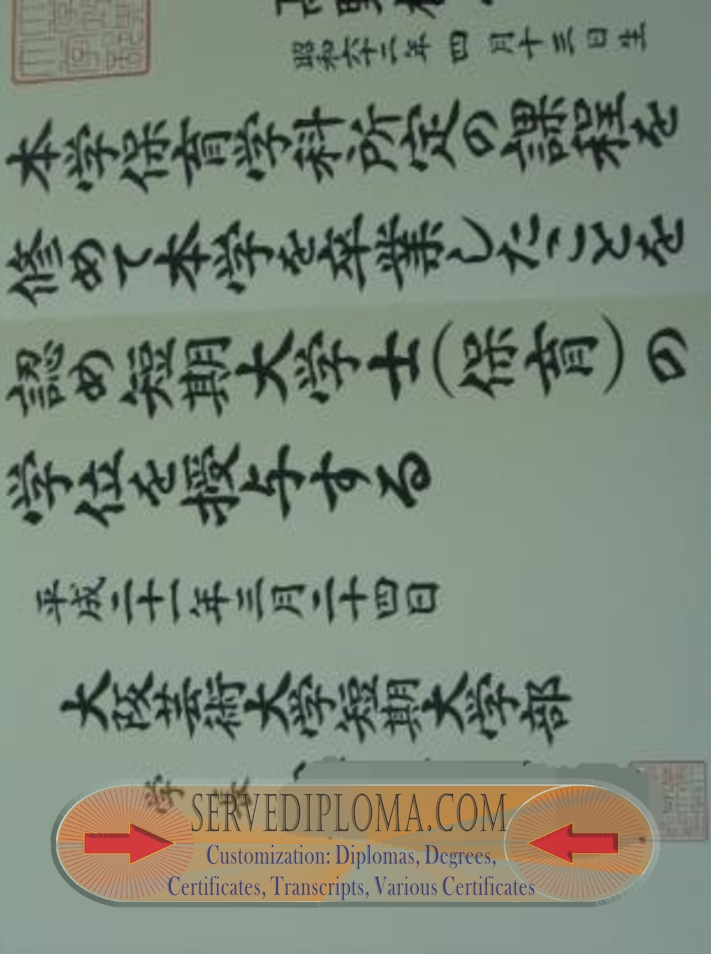 昭和六十二年四月十三日生
本学保育学科所定の課程を
修めて本学を卒業したことを
認め短期大学士(保育)の
学位を授与する
平成二十一年三月二十四日
大阪芸術大学短期大学部
学長
SERVEDIPLOMA.COM
Customization: Diplomas, Degrees,
Certificates, Transcripts, Various Certificates